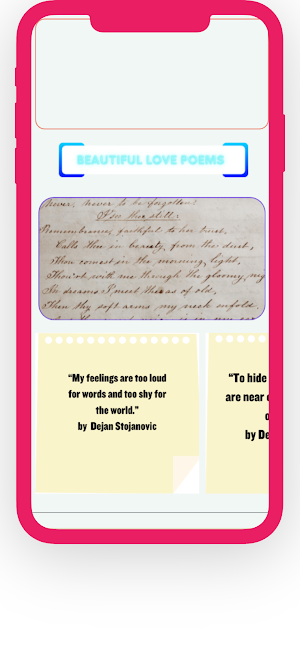 BEAUTIFUL LOVE POEMS
never, never to be forgotten!
I see thee still:
Remembrance, faithful to her trust,
Calls thee in beauty, from the dust,
Thou comest in the morning light,
Thou'rt with me through the gloomy
In dreams I meet thee as of old,
Then thy soft arms my neck enfold,
“My feelings are too loud
for words and too shy for
the world.”
by Dejan Stojanovic
“To hide
are near
by De